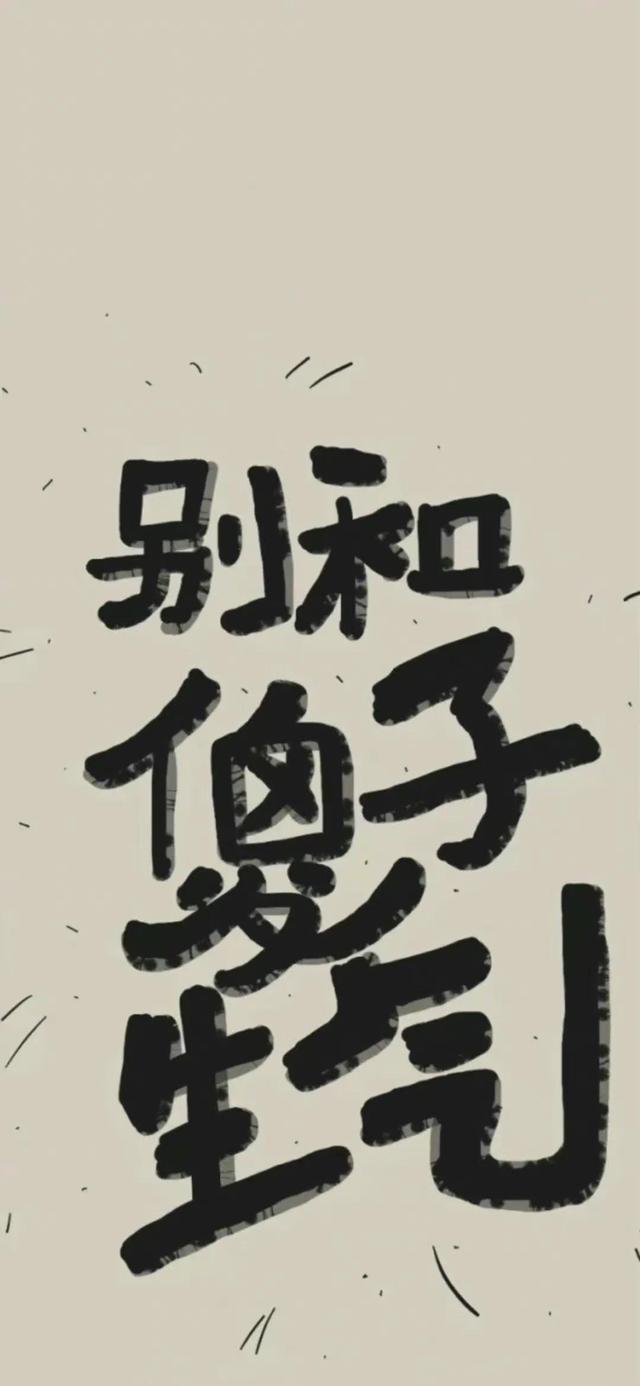 别和
傻子
生气